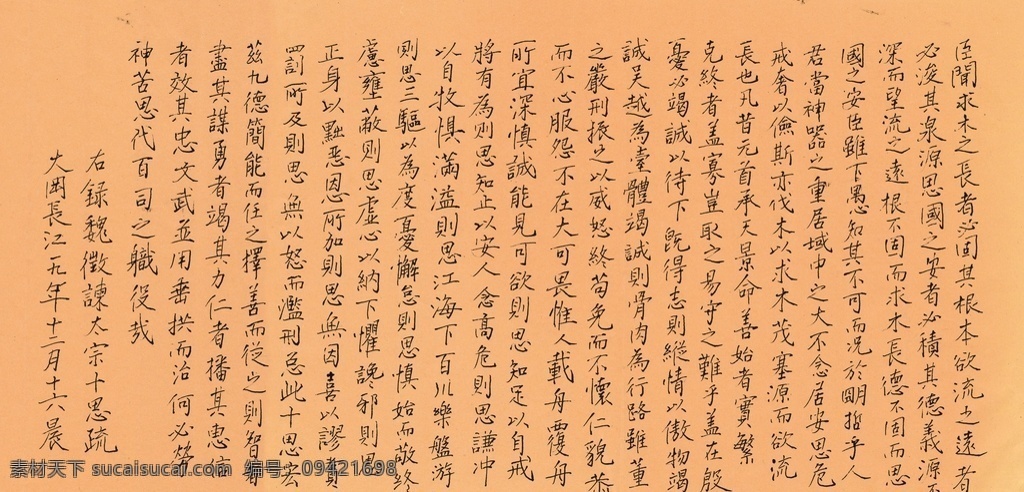 臣聞求木之長者必固其根本欲流之遠者
必浚其泉源思國之安者必積其德義源不
深而望流之遠根不固而求木長德不固而思
國之安臣雖下愚知其不可而況於明哲乎人
君當神器之重居域中之大不念居安思危
戒奢以儉斯亦伐木以求木茂塞源而欲流
長也凡昔元首承天景命善始者實繁
克終者蓋寡豈取之易守之難乎蓋在殷
憂必竭誠以待下既得志則縱情以傲物竭
誠吴越為壹體竭誠則骨肉為行路雖董
之嚴刑振之以威怒終苟免而不懷仁貌恭
而不心服怨不在大可畏惟人載舟覆舟
所宜深慎誠能見可欲則思知足以自戒
將有為則思知止以安人念高危則思謙冲
以自牧懼滿溢則思江海下百川樂盤游
則思三驅以為度憂懈怠則思慎始而敬終
慮壅蔽則思虛心以納下懼讒邪則思
正身以黜惡恩所加則思無因喜以謬賞
罰所及則思無以怒而濫刑总此十思宏
茲九德簡能而任之擇善而從之則智者
盡其謀勇者竭其力仁者播其惠信
者效其忠文武並用垂拱而治何必勞
神苦思代百司之職役哉
右錄魏徵諫太宗十思疏
大岡長江一九年十二月十六晨
素材天下 sucaisucai.com 编号：09421698